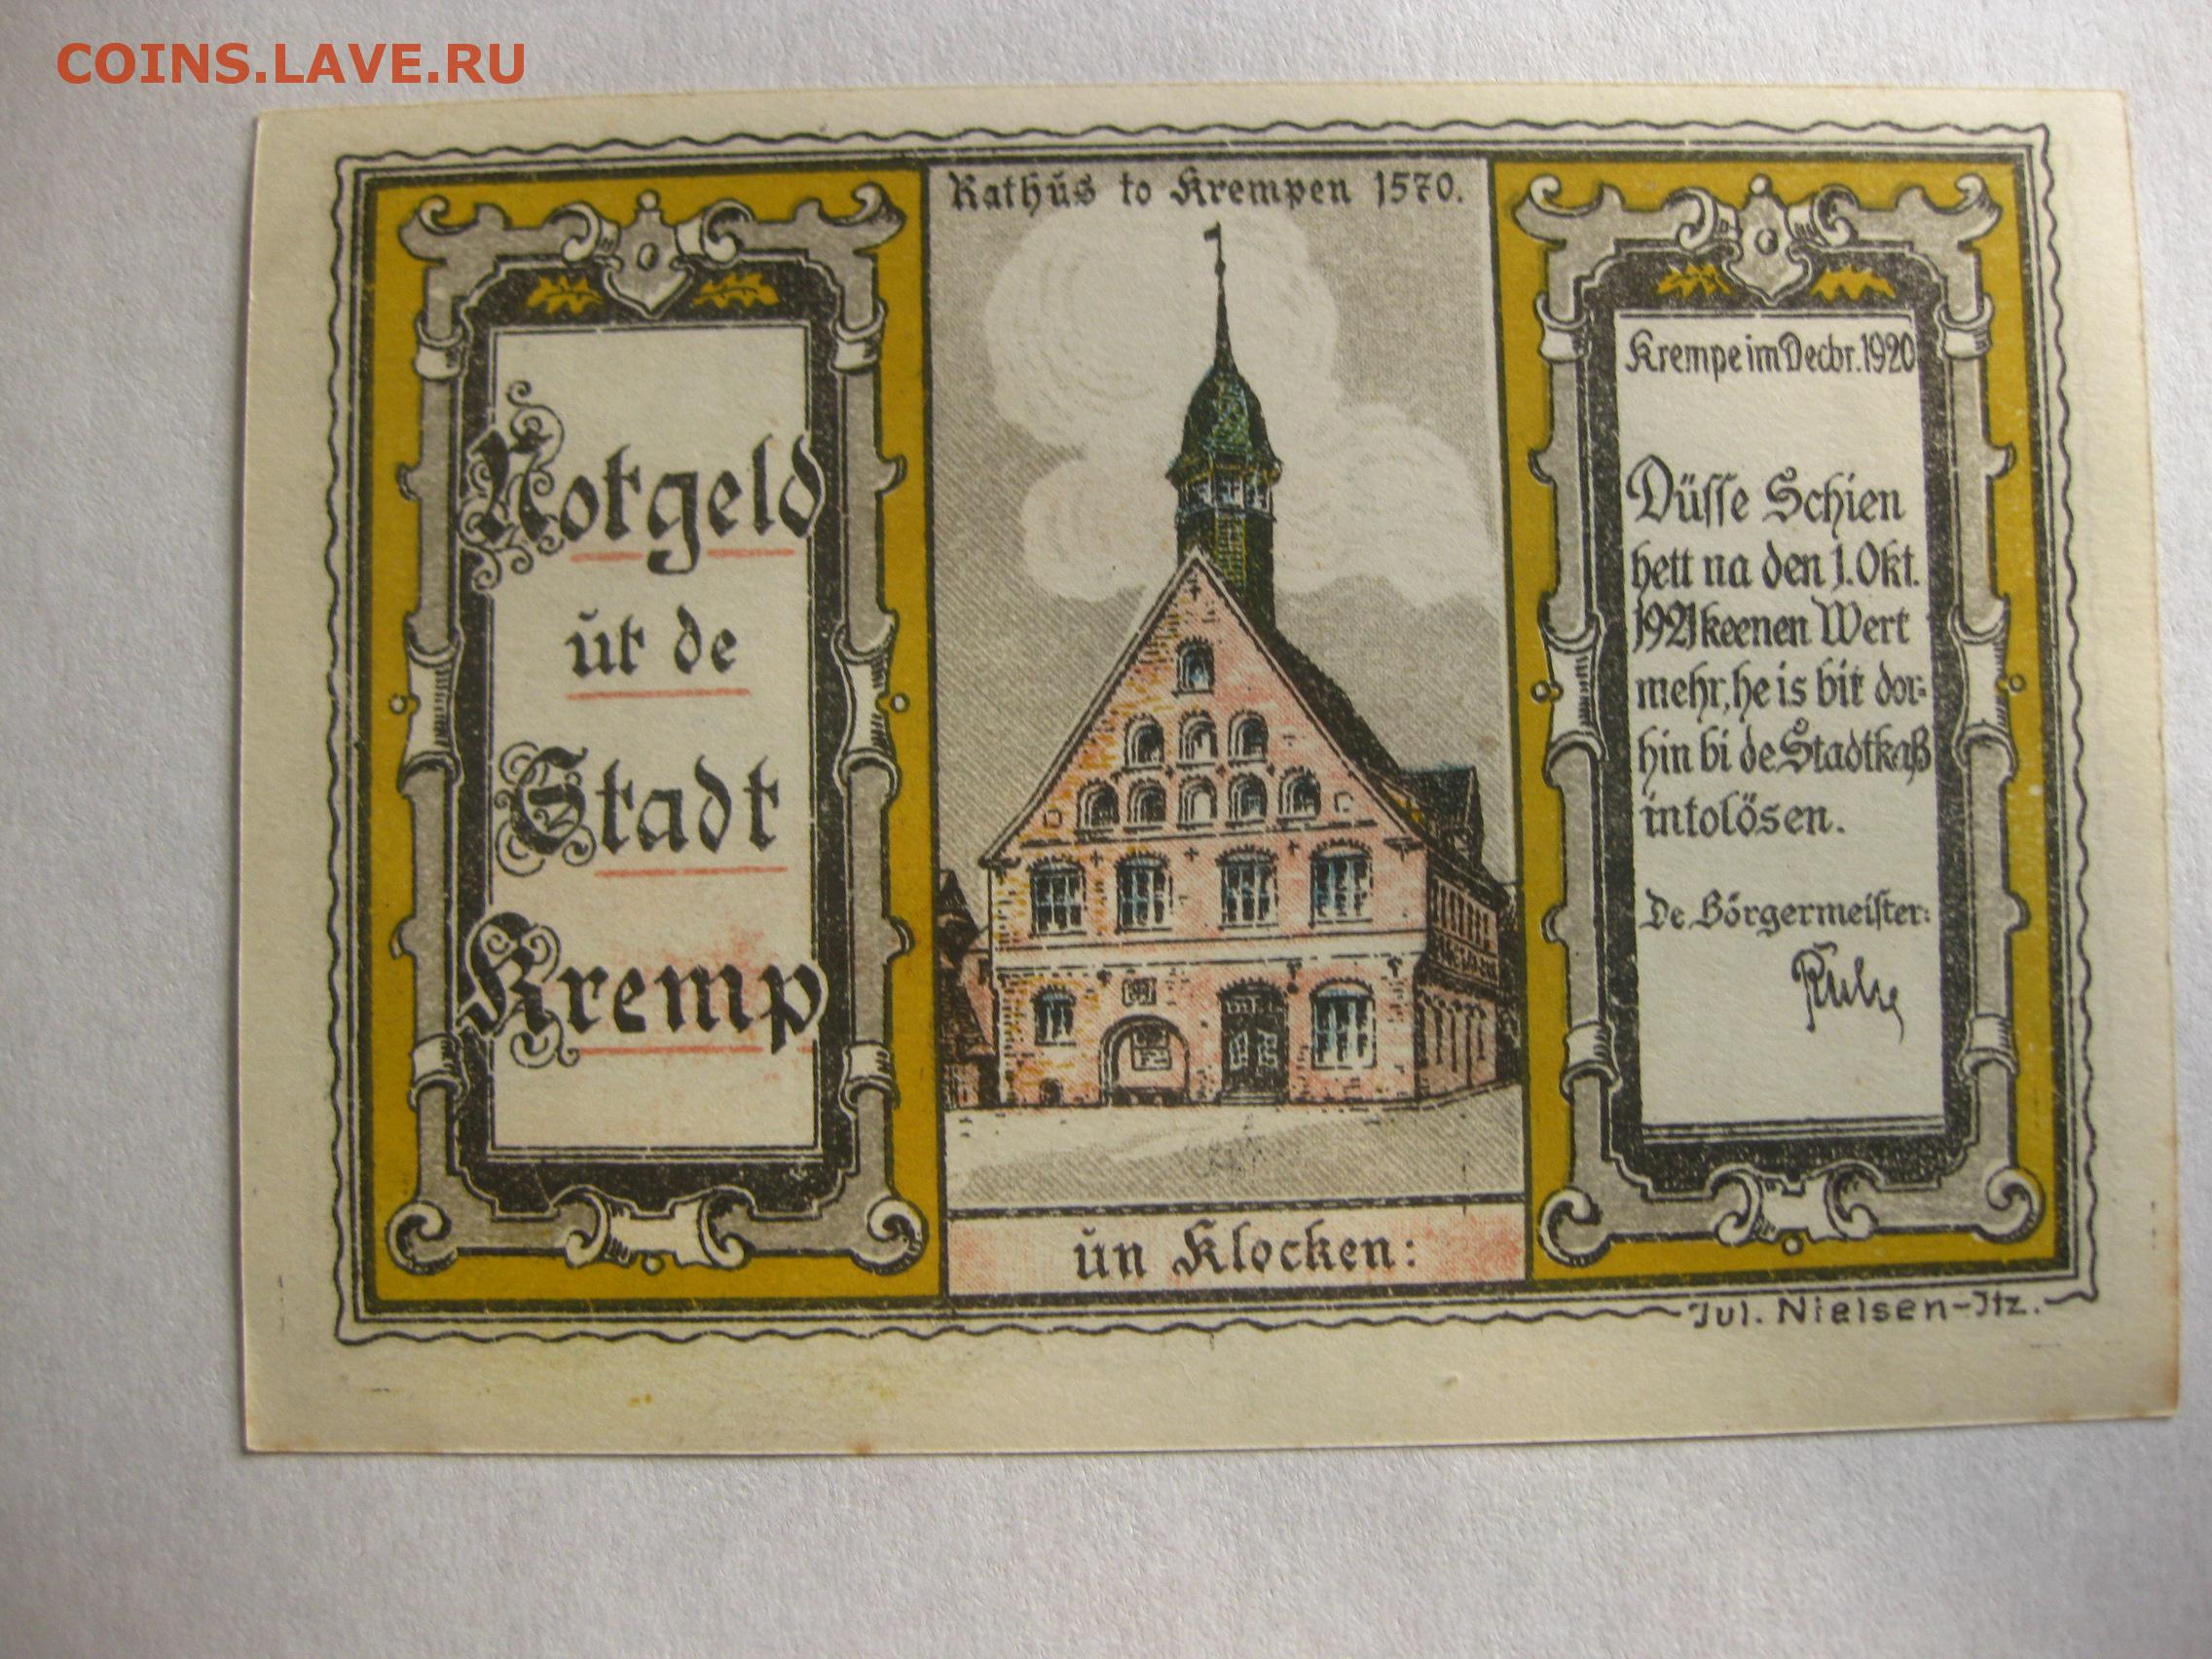 COINS.LAVE.RU
Rathŭs to Krempen 1570.
Notgeld
ŭt de
Stadt
Kremp
ŭn Klocken:
Krempe im Decbr. 1920
Düſſe Schien
hett na den 1. Okt.
1921 keenen Wert
mehr, he is bit dor=
hin bi de Stadtkaß
intolösen.
De Börgermeiſter:
Jul. Nielsen-Itz.